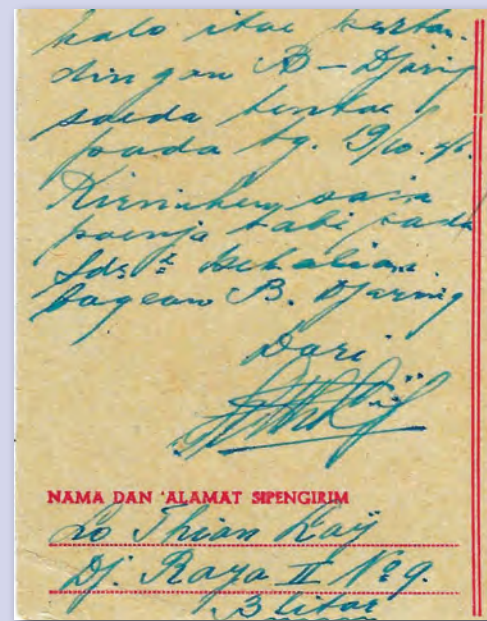 kalo itoe pertan-
dingan B-Djaring
soeda tentoe
pada tg. 19/10.46.
Kirimken saia
poenja tabi pada
Sdr² sekalian
bagean B. Djaring
Dari
NAMA DAN ALAMAT SIPENGIRIM
Lo Thian Kaij
Dj. Raya II No 9.
Blitar